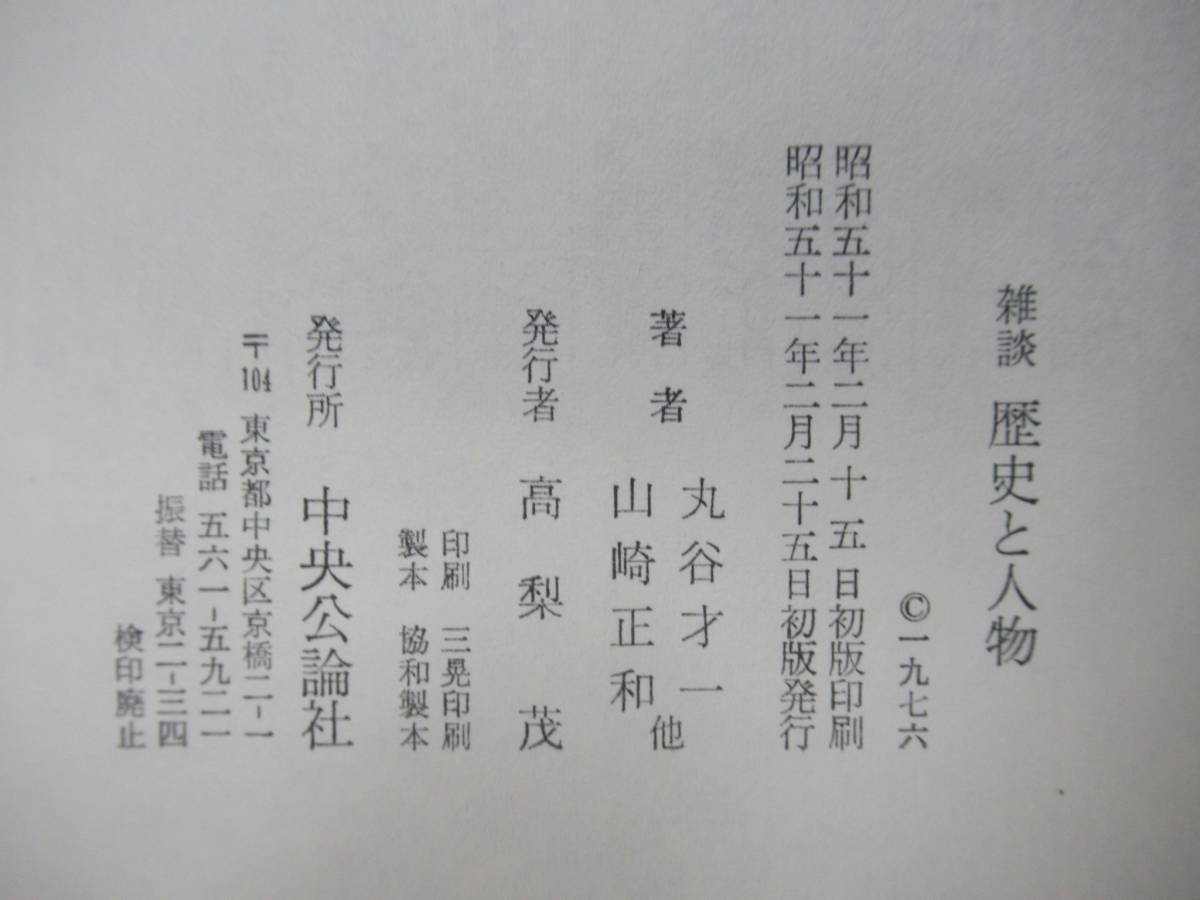 雑談 歴史と人物
©一九七六
昭和五十一年二月十五日初版印刷
昭和五十一年二月二十五日初版発行
著者 丸谷才一
山崎正和
他
発行者 高梨 茂
印刷 三晃印刷
製本 協和製本
発行所 中央公論社
〒104 東京都中央区京橋二-一
電話 五六一-五九二一
振替 東京二-三四
検印廃止